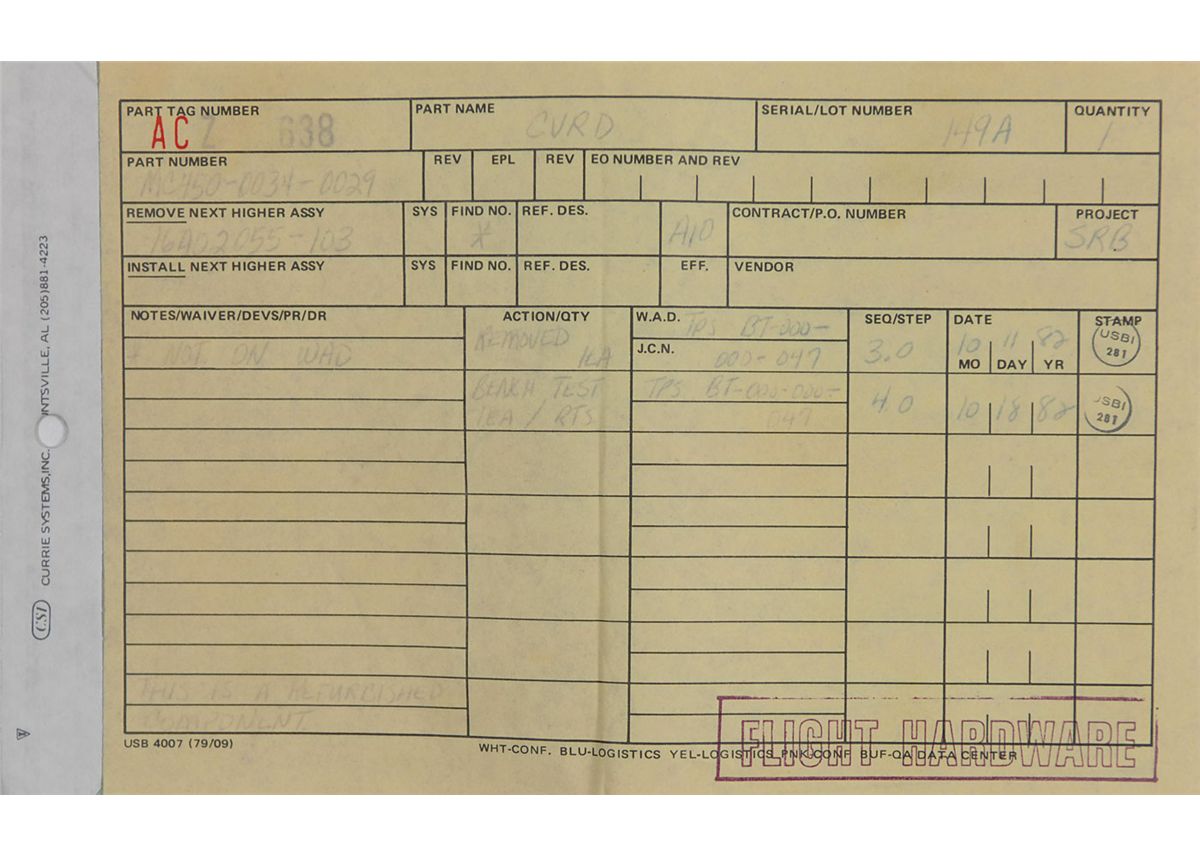 PART TAG NUMBER
AC Z 638
PART NAME
CVRD
SERIAL/LOT NUMBER
149A
QUANTITY
1
PART NUMBER
MC450-0034-0029
REV EPL REV EO NUMBER AND REV
REMOVE NEXT HIGHER ASSY
16A02055-103
SYS FIND NO. REF. DES.
*
A10
CONTRACT/P.O. NUMBER
PROJECT
SRB
INSTALL NEXT HIGHER ASSY SYS FIND NO. REF. DES. EFF. VENDOR
NOTES/WAIVER/DEVS/PR/DR ACTION/QTY W.A.D. SEQ/STEP DATE STAMP
* NOT ON WAD
REMOVED
1EA
TPS BT-000-
J.C.N.
000-047
3.0
10 11 82
MO DAY YR
USBI
281
BENCH TEST
1EA / RTS
TPS BT-000-000-
047
4.0
10 18 82
USBI
281
THIS IS A REFURBISHED
COMPONENT
USB 4007 (79/09)
WHT-CONF. BLU-LOGISTICS YEL-LOGISTICS PNK-CONF BUF-QA DATA CENTER
FLIGHT HARDWARE
CSI CURRIE SYSTEMS, INC. NTSVILLE, AL (205) 881-4223